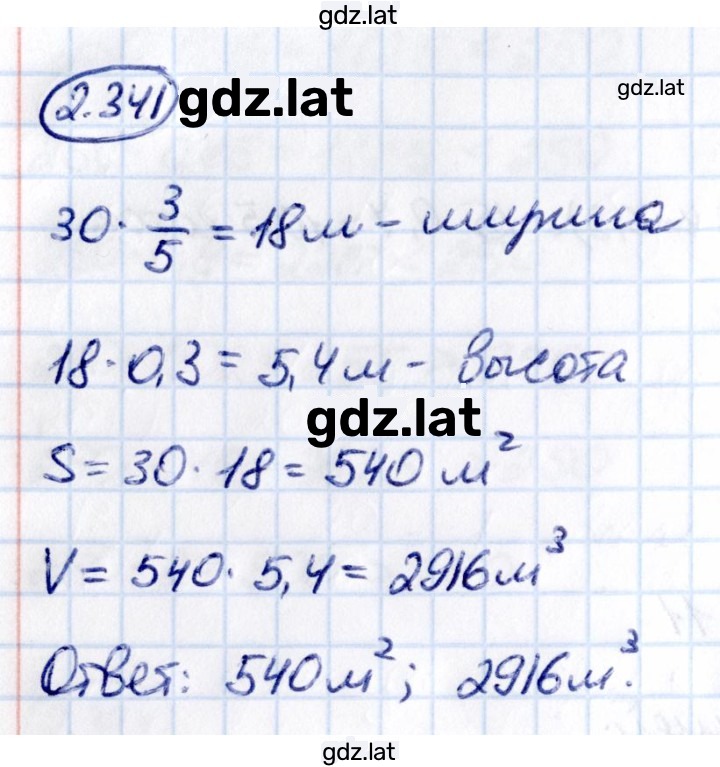 gdz.lat
2.341 gdz.lat
gdz.lat
30 · 3/5 = 18 м - ширина
18 · 0,3 = 5,4 м - высота
gdz.lat
S = 30 · 18 = 540 м²
V = 540 · 5,4 = 2916 м³
Ответ: 540 м²; 2916 м³.
gdz.lat